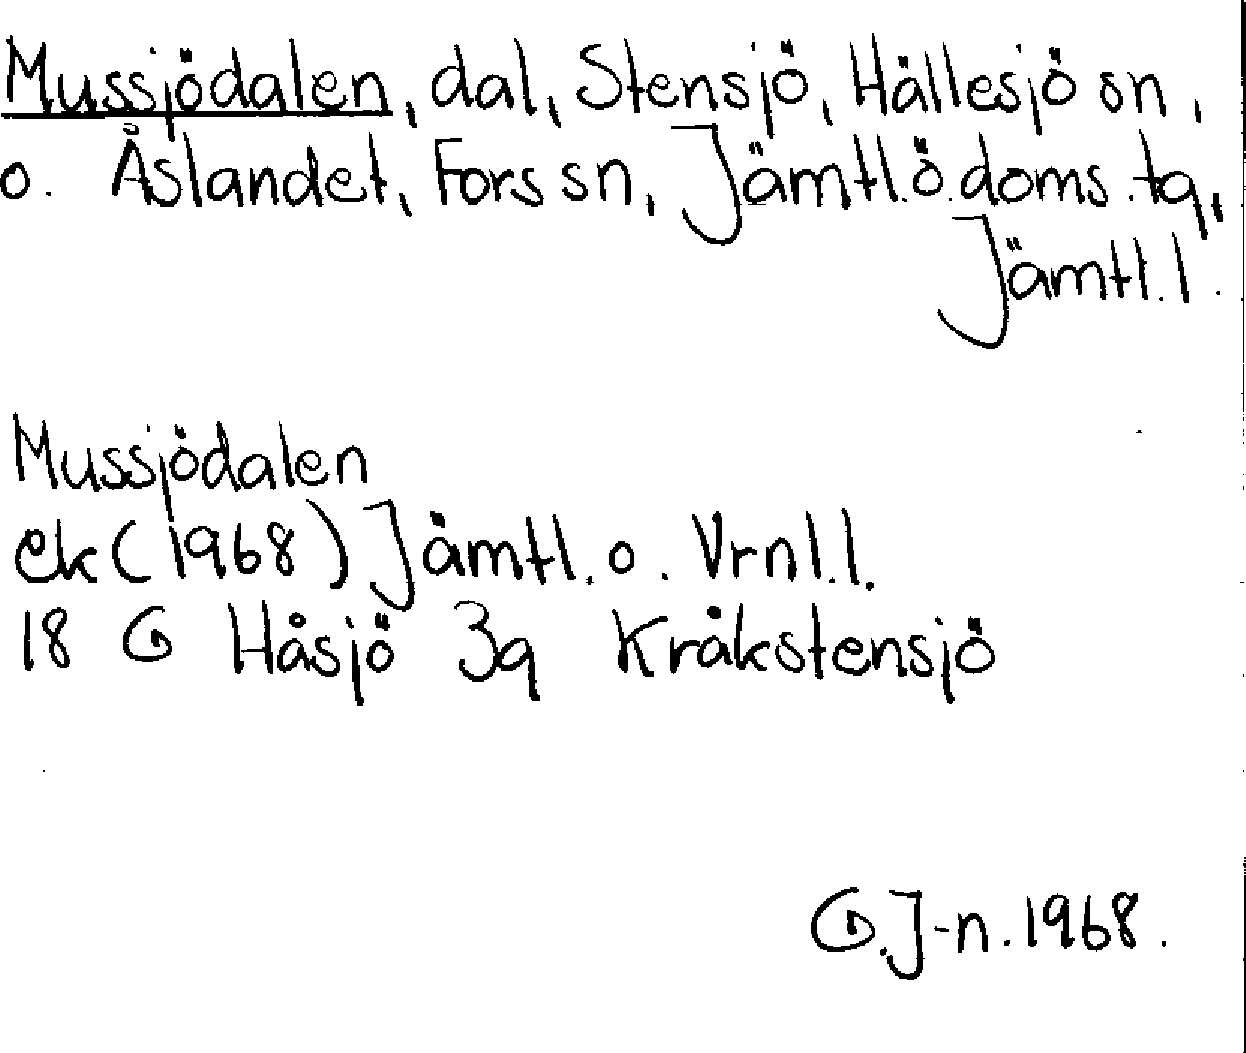 Mussjödalen, dal, Stensjö, Hällesjö sn,
o. Åslandet, Fors sn, Jämtl.ö.doms.tg,
Jämtl.l.
Mussjödalen
ek (1968) Jämtl. o. Vrnl.l.
18 G Håsjö 3g Kråkstensjö
G.J-n.1968.